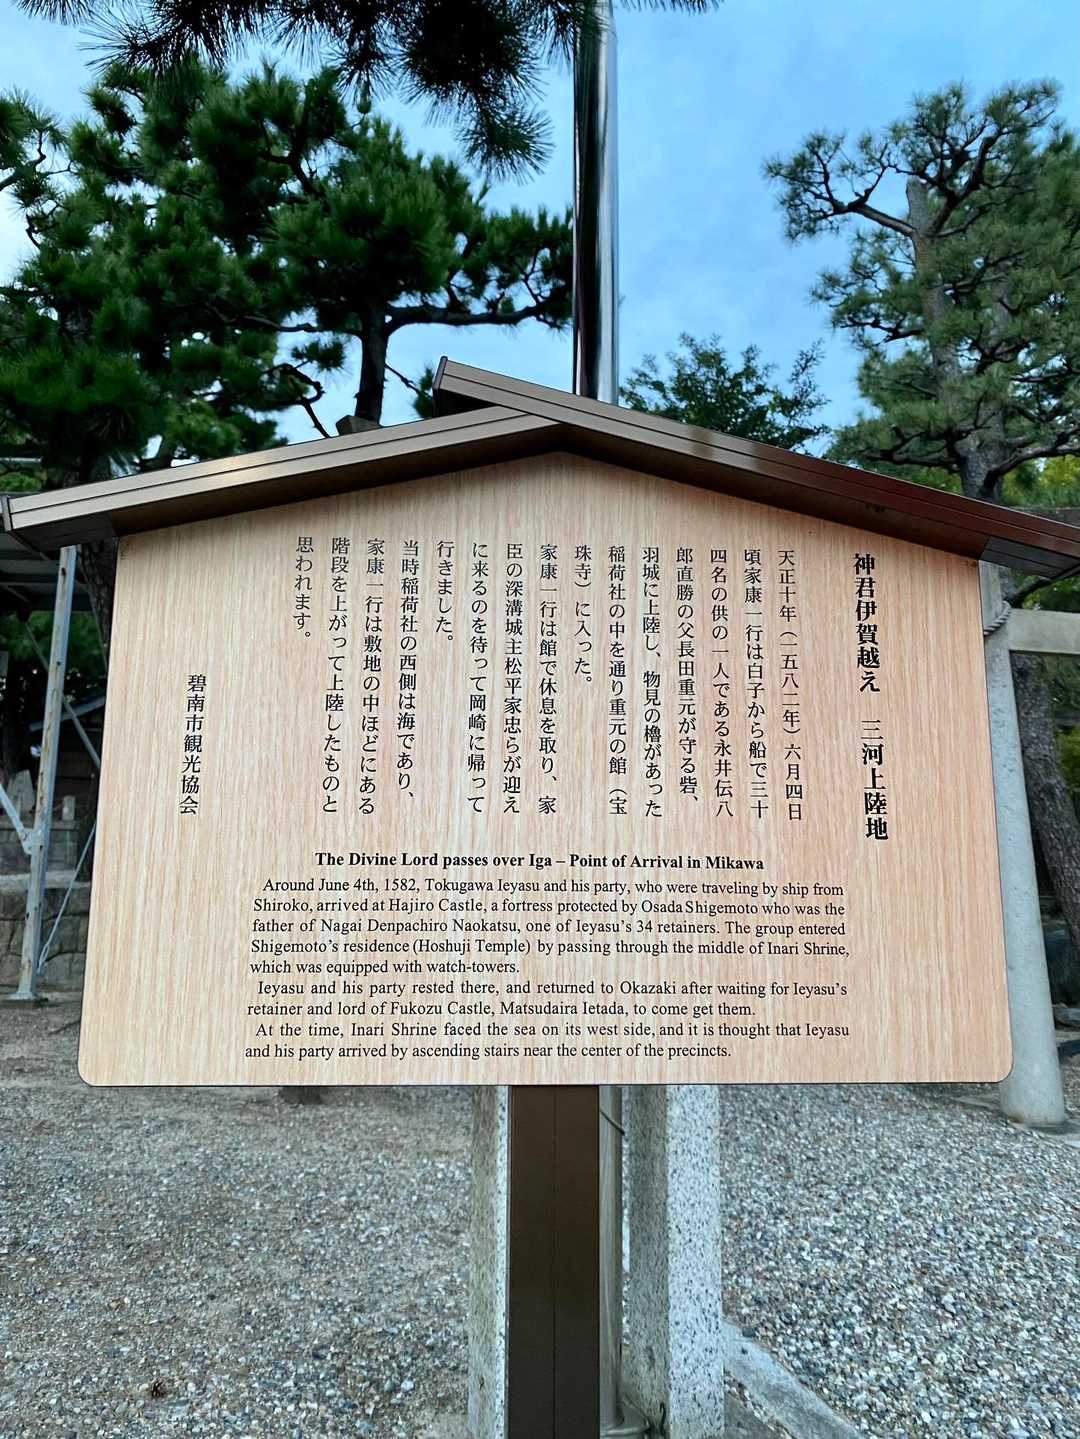 神君伊賀越え　三河上陸地
天正十年（一五八二年）六月四日
頃家康一行は白子から船で三十
四名の供の一人である永井伝八
郎直勝の父長田重元が守る砦、
羽城に上陸し、物見の櫓があった
稲荷社の中を通り重元の館（宝
珠寺）に入った。
家康一行は館で休息を取り、家
臣の深溝城主松平家忠らが迎え
に来るのを待って岡崎に帰って
行きました。
当時稲荷社の西側は海であり、
家康一行は敷地の中ほどにある
階段を上がって上陸したものと
思われます。
碧南市観光協会
The Divine Lord passes over Iga – Point of Arrival in Mikawa
Around June 4th, 1582, Tokugawa Ieyasu and his party, who were traveling by ship from
Shiroko, arrived at Hajiro Castle, a fortress protected by Osada Shigemoto who was the
father of Nagai Denpachiro Naokatsu, one of Ieyasu's 34 retainers. The group entered
Shigemoto's residence (Hoshuji Temple) by passing through the middle of Inari Shrine,
which was equipped with watch-towers.
Ieyasu and his party rested there, and returned to Okazaki after waiting for Ieyasu's
retainer and lord of Fukozu Castle, Matsudaira Ietada, to come get them.
At the time, Inari Shrine faced the sea on its west side, and it is thought that Ieyasu
and his party arrived by ascending stairs near the center of the precincts.